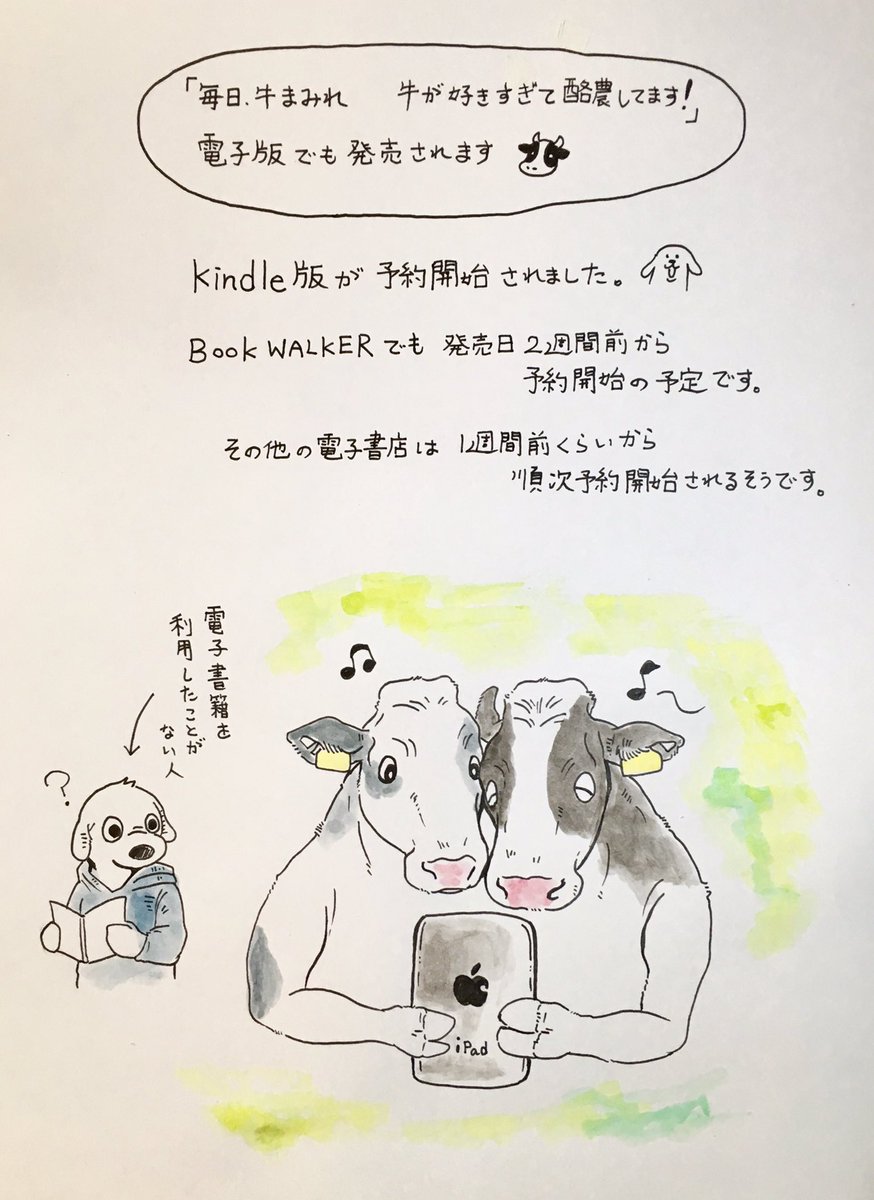 「毎日、牛まみれ　牛が好きすぎて酪農してます!」
電子版でも発売されます
kindle版が予約開始されました。
Book WALKERでも 発売日2週間前から
予約開始の予定です。
その他の電子書店は 1週間前くらいから
順次予約開始されるそうです。
電子書籍を
利用したことが
ない人
?
iPad